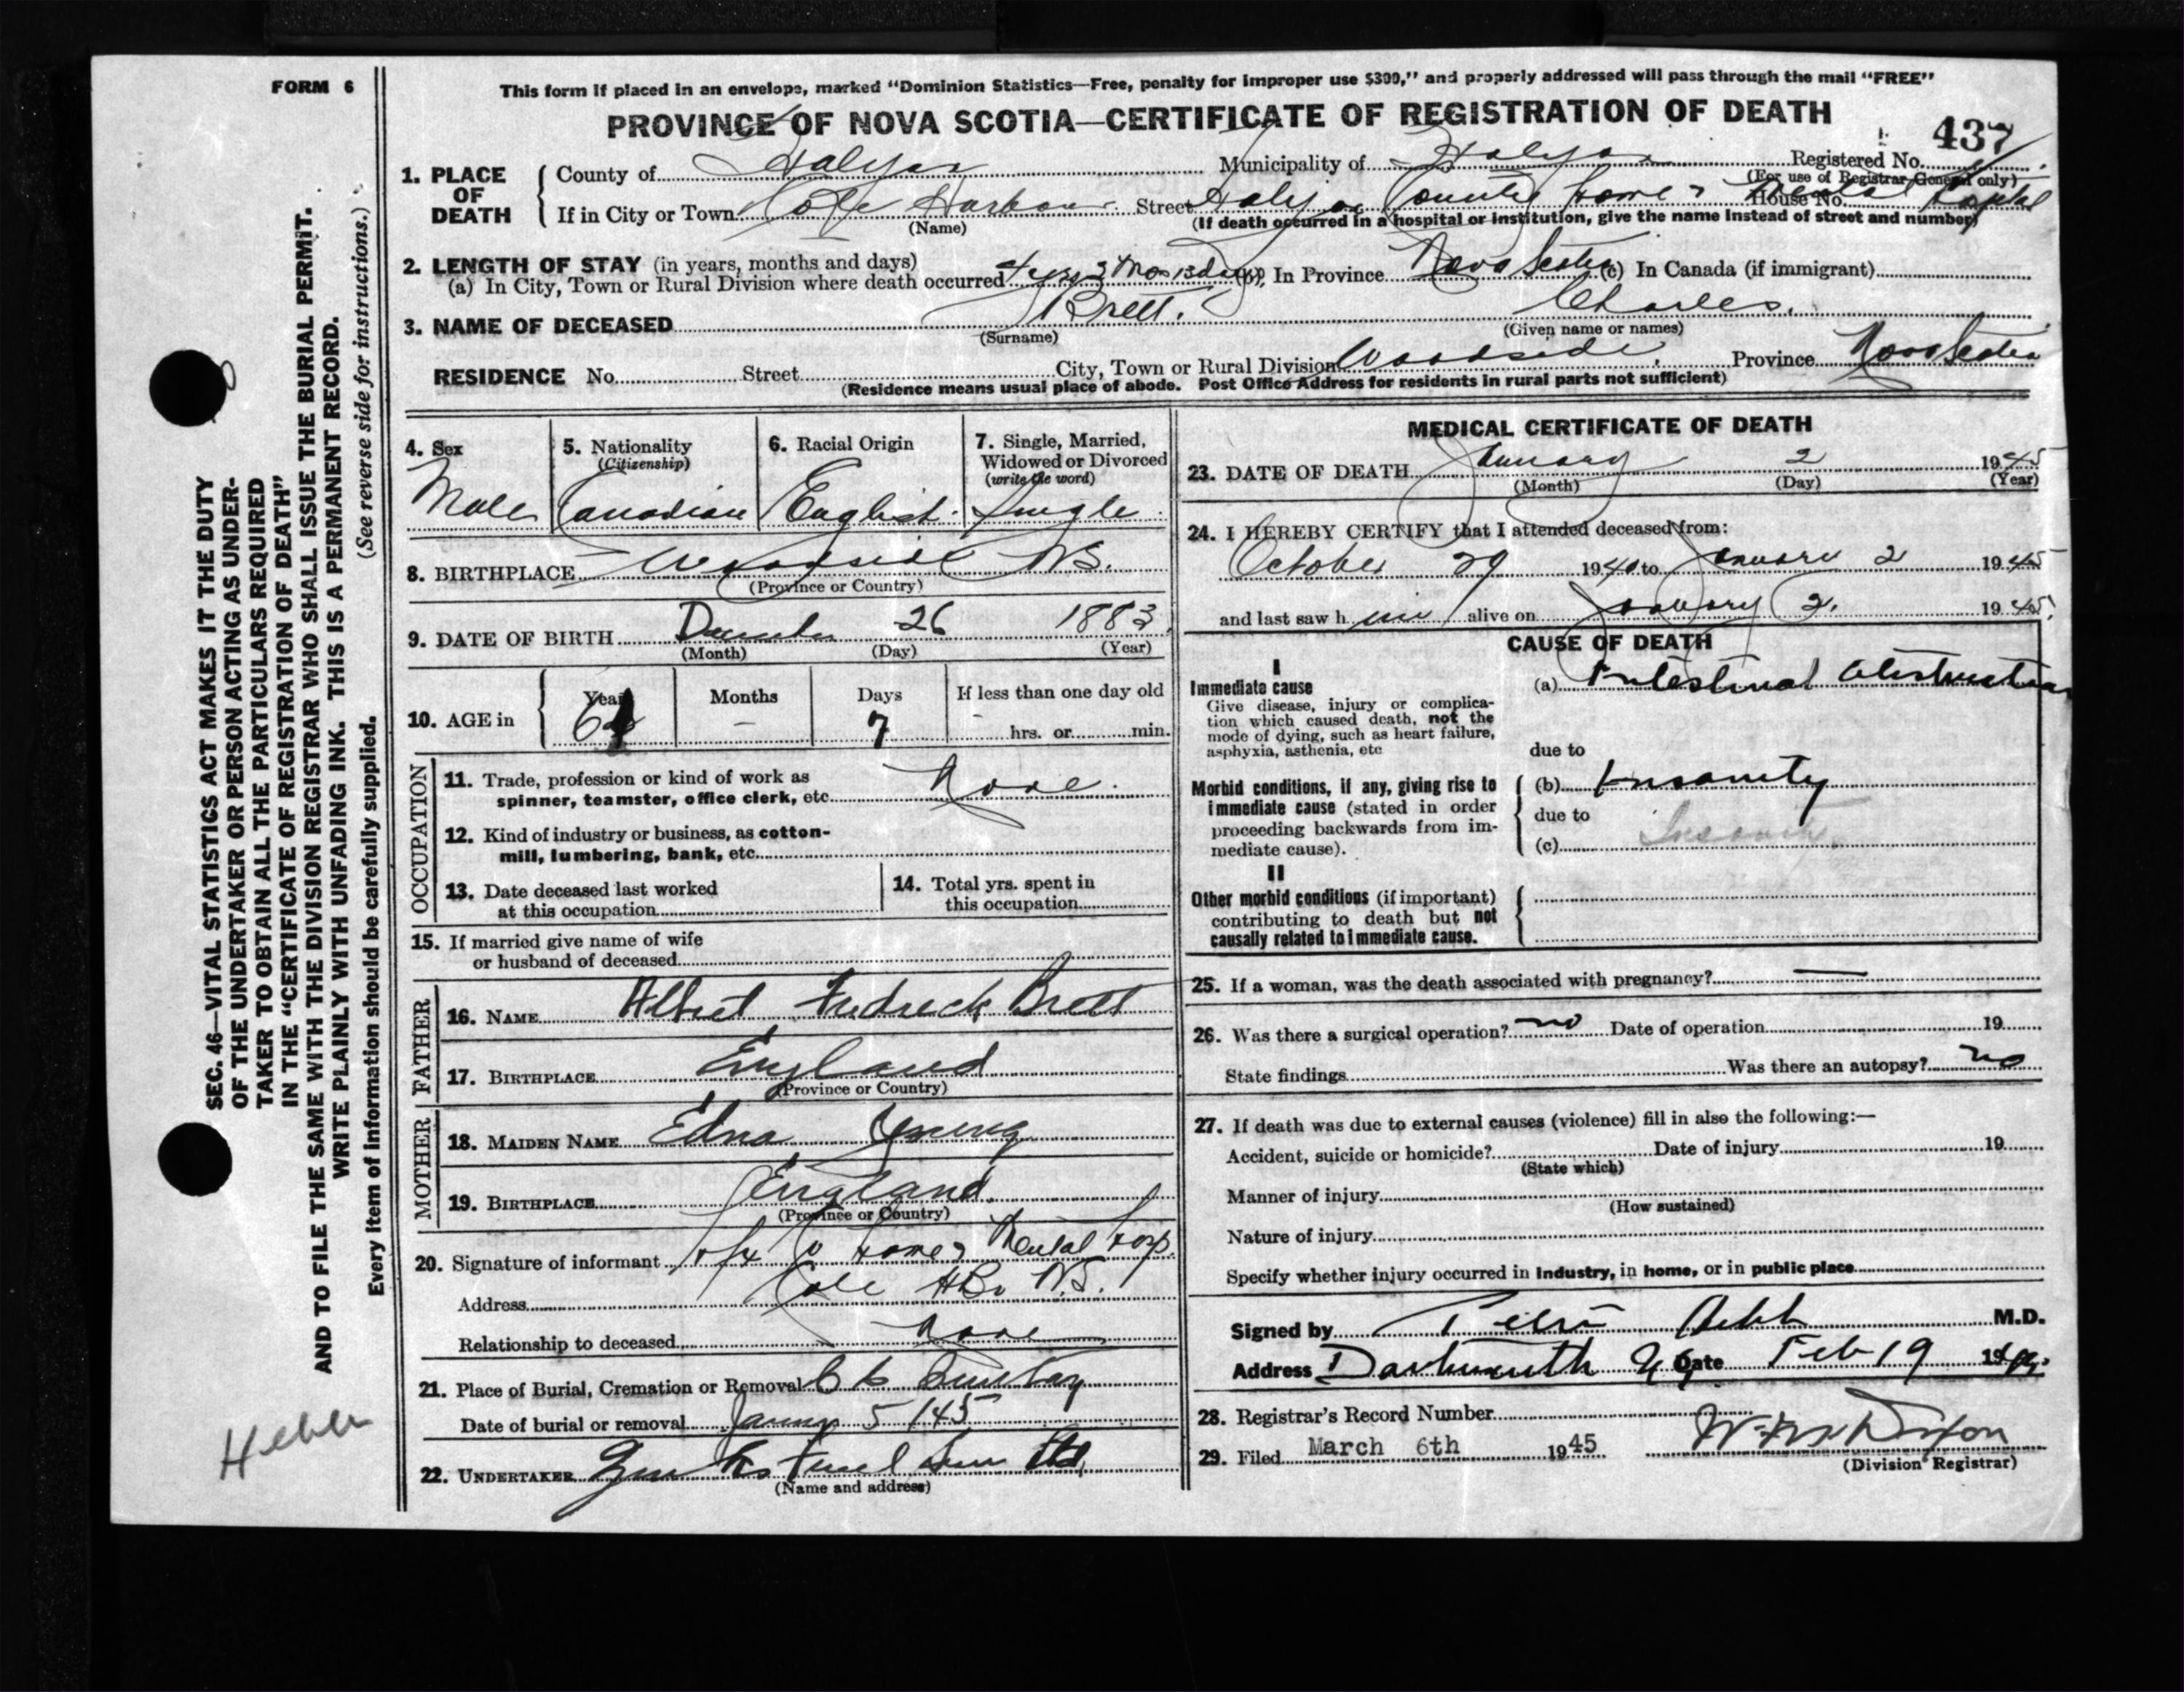 FORM 6
This form if placed in an envelope, marked "Dominion Statistics—Free, penalty for improper use $300," and properly addressed will pass through the mail "FREE"
PROVINCE OF NOVA SCOTIA—CERTIFICATE OF REGISTRATION OF DEATH
437
1. PLACE OF DEATH
County of Halifax Municipality of Halifax Registered No.
(For use of Registrar General only)
If in City or Town Cole Harbour Street Halifax County Home & Mental Hospital House No.
(Name) (If death occurred in a hospital or institution, give the name instead of street and number)
2. LENGTH OF STAY (in years, months and days)
(a) In City, Town or Rural Division where death occurred 4 yrs 2 Mos 13 Days (b) In Province Nova Scotia (c) In Canada (if immigrant)
3. NAME OF DECEASED Brett. Charles.
(Surname) (Given name or names)
RESIDENCE No. Street City, Town or Rural Division Woodside, Province Nova Scotia
(Residence means usual place of abode. Post Office Address for residents in rural parts not sufficient)
4. Sex
Male
5. Nationality
(Citizenship)
Canadian
6. Racial Origin
English.
7. Single, Married,
Widowed or Divorced
(write the word)
Single
8. BIRTHPLACE Woodside N.S.
(Province or Country)
9. DATE OF BIRTH December 26 1883
(Month) (Day) (Year)
10. AGE in
Years Months Days If less than one day old
61 — 7 - hrs. or min.
OCCUPATION
11. Trade, profession or kind of work as
spinner, teamster, office clerk, etc. None.
12. Kind of industry or business, as cotton-
mill, lumbering, bank, etc.
13. Date deceased last worked
at this occupation
14. Total yrs. spent in
this occupation
15. If married give name of wife
or husband of deceased
FATHER
16. NAME Albert Fredrick Brett
17. BIRTHPLACE England
(Province or Country)
MOTHER
18. MAIDEN NAME Edna Young
19. BIRTHPLACE England.
(Province or Country)
20. Signature of informant Hfx Home & Mental Hosp.
Address Cole HBr N.S.
Relationship to deceased None
21. Place of Burial, Cremation or Removal
Date of burial or removal 5 / 45
22. UNDERTAKER Ltd
(Name and address)
MEDICAL CERTIFICATE OF DEATH
23. DATE OF DEATH January 2 1945
(Month) (Day) (Year)
24. I HEREBY CERTIFY that I attended deceased from:
October 29 1940 to January 2 1945
and last saw him alive on January 2. 1945.
CAUSE OF DEATH
I
Immediate cause
Give disease, injury or complica-
tion which caused death, not the
mode of dying, such as heart failure,
asphyxia, asthenia, etc
(a) Intestinal Obstruction
due to
Morbid conditions, if any, giving rise to
immediate cause (stated in order
proceeding backwards from im-
mediate cause).
(b) Insanity
due to
(c) Insanity.
II
Other morbid conditions (if important)
contributing to death but not
causally related to immediate cause.
25. If a woman, was the death associated with pregnancy? —
26. Was there a surgical operation? no Date of operation 19
State findings Was there an autopsy? no
27. If death was due to external causes (violence) fill in also the following:—
Accident, suicide or homicide? Date of injury 19
(State which)
Manner of injury
(How sustained)
Nature of injury
Specify whether injury occurred in industry, in home, or in public place
Signed by M.D.
Address Dartmouth Date Feb 19
28. Registrar's Record Number
29. Filed March 6th 1945
(Division Registrar)
SEC. 46—VITAL STATISTICS ACT MAKES IT THE DUTY
OF THE UNDERTAKER OR PERSON ACTING AS UNDER-
TAKER TO OBTAIN ALL THE PARTICULARS REQUIRED
IN THE "CERTIFICATE OF REGISTRATION OF DEATH"
AND TO FILE THE SAME WITH THE DIVISION REGISTRAR WHO SHALL ISSUE THE BURIAL PERMIT.
WRITE PLAINLY WITH UNFADING INK. THIS IS A PERMANENT RECORD.
(See reverse side for instructions.)
Every item of information should be carefully supplied.